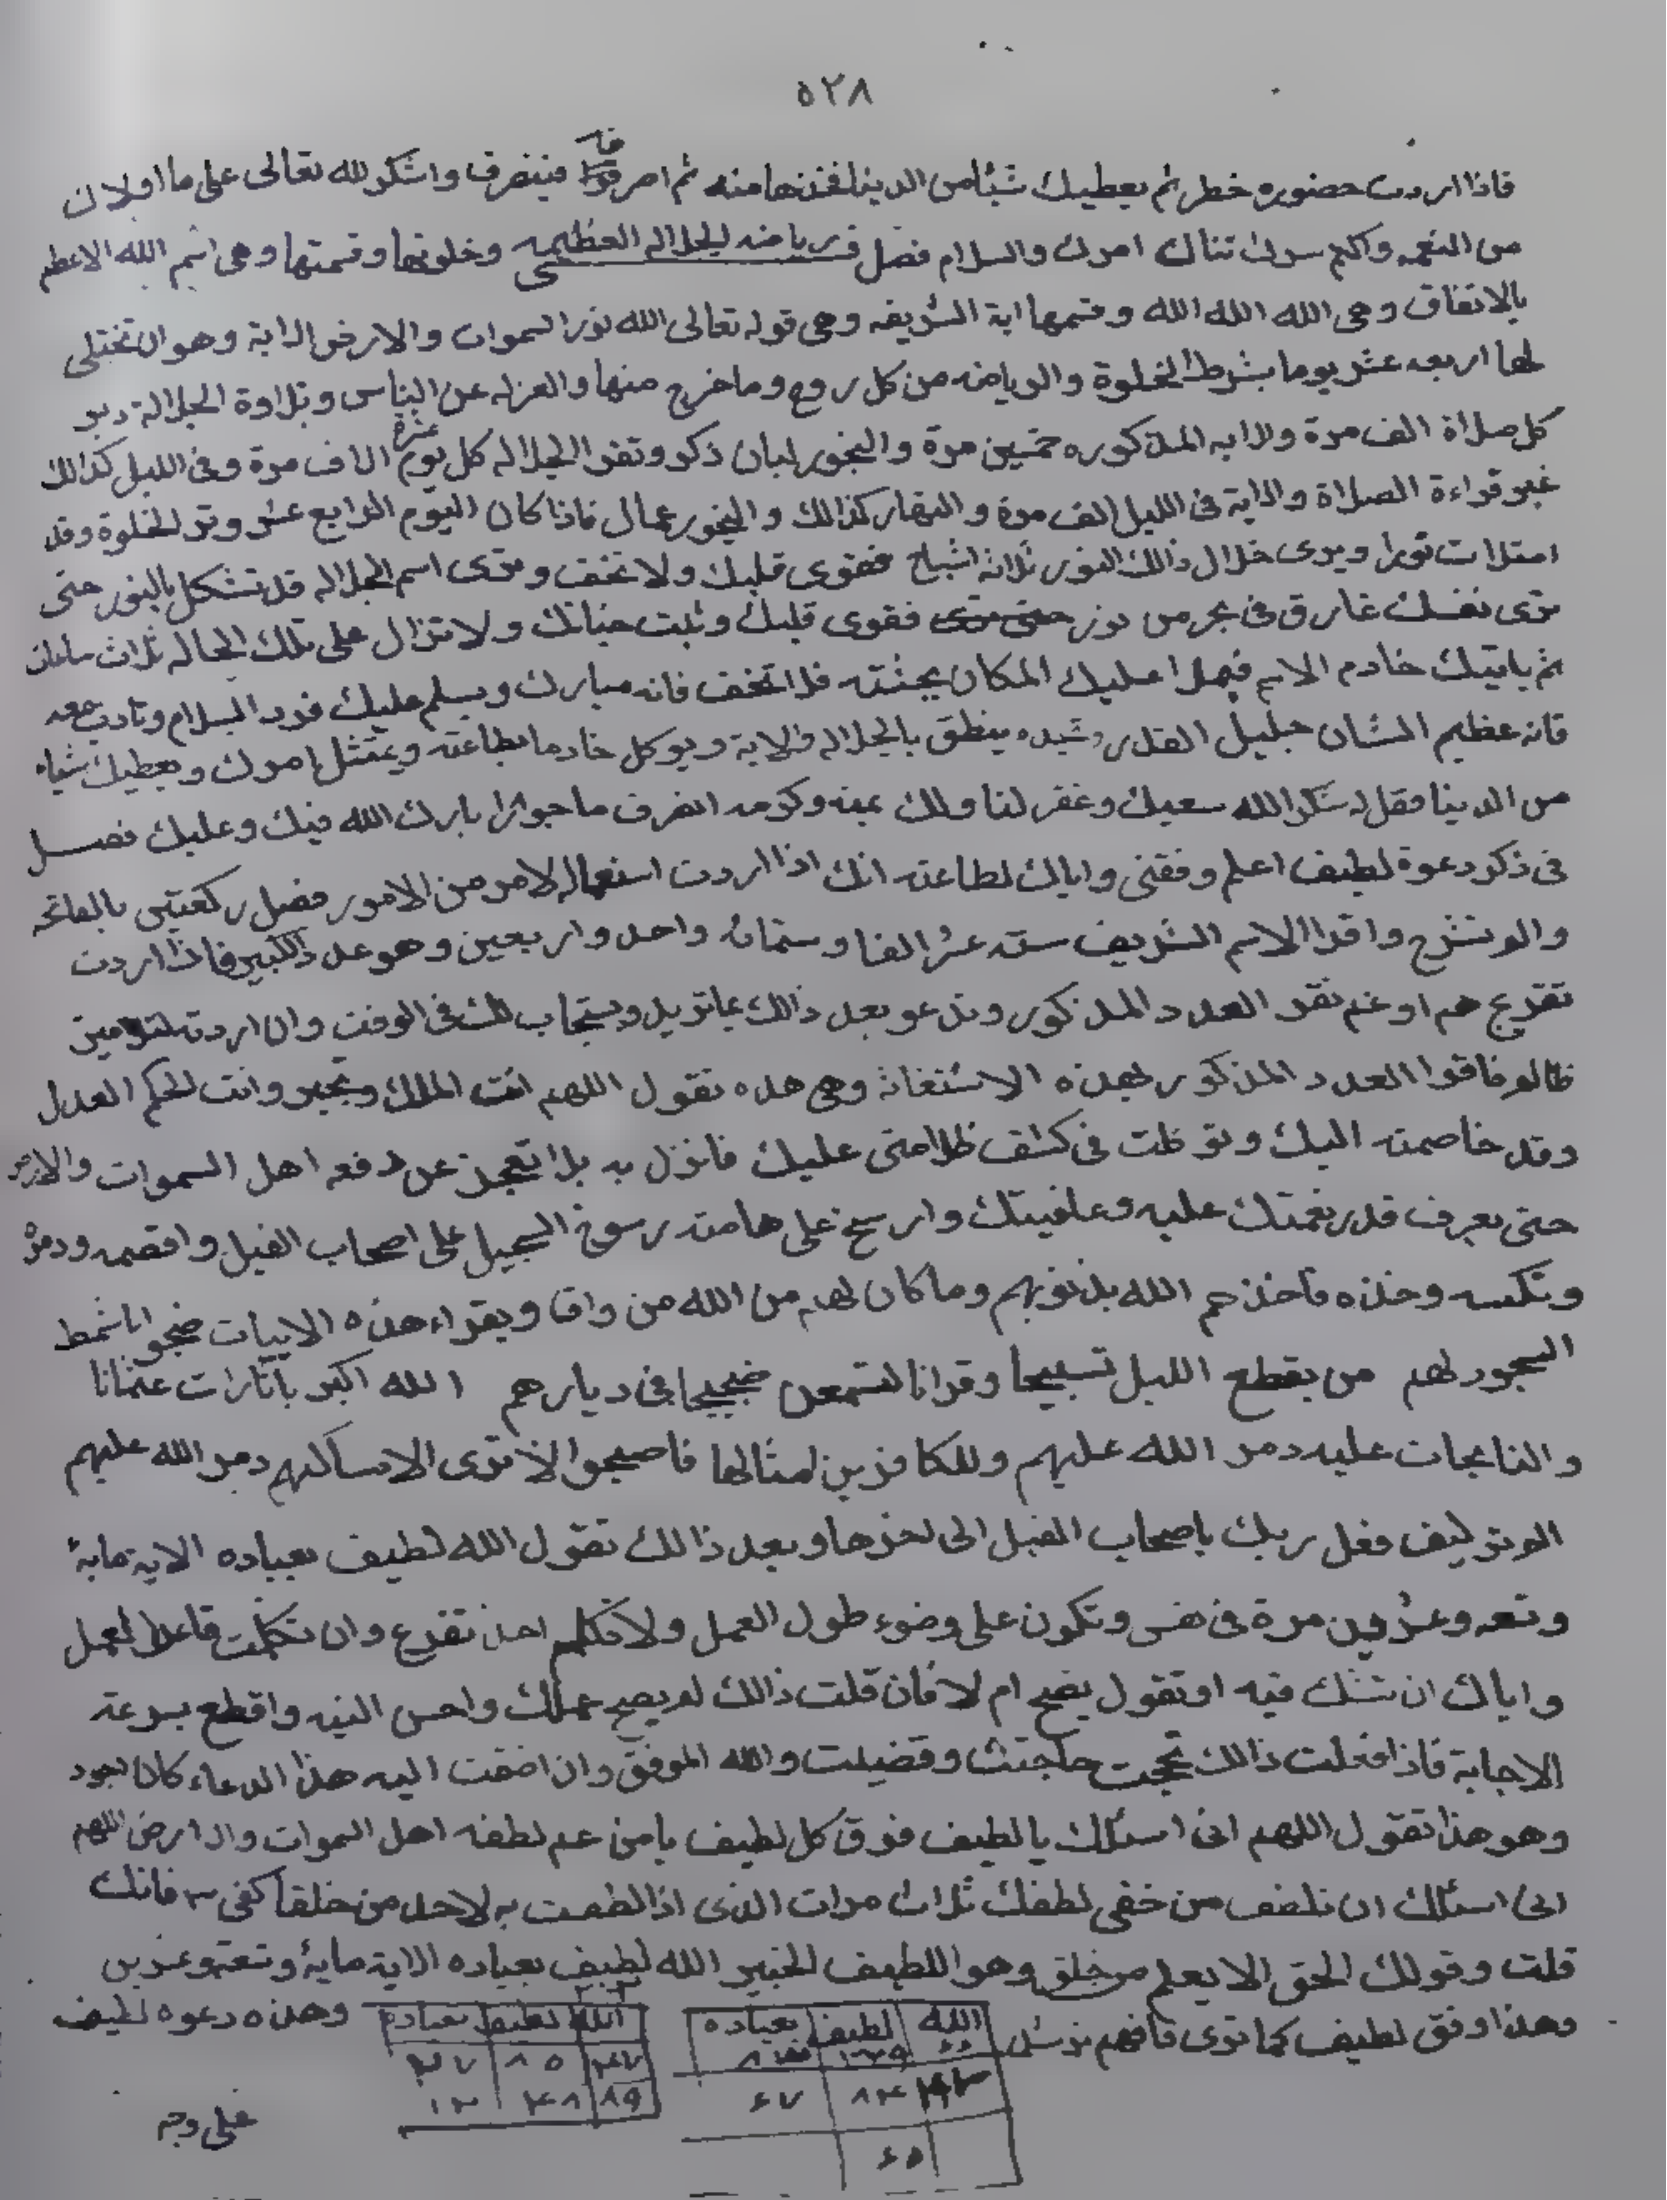 ٥٢٨
فاذا اردت حضوره خطر ثم يعطيك شيئا من الدينا فخذها منه ثم امره فينصرف واشكر لله تعالى على ما اولان
من النعمه واكتم سرك تنال امرك والسلام فصل فى رياضه الجلاله العظيمه وخلوتها وقسمتها وهى اسم الله الاعظم
بالاتفاق وهى الله الله الله وقسمها اية الشريفه وهى قوله تعالى الله نور السموات والارض الاية وهو ان تختلى
لها اربعه عشر يوما بشرط الخلوة والرياضه من كل روح وما خرج منها والعزله عن الناس وتلاوة الجلالة دبر
كل صلاة الف مرة والايه المذكوره خمسين مرة والبخور لبان ذكر وتقرا الجلاله كل يوم عشرة الاف مرة وفى الليل كذالك
غير قراءة الصلاة والاية فى الليل الف مرة والنهار كذالك والبخور عمال فاذا كان اليوم الرابع عشر وتر الخلوة وقد
امتلات نورا ويرى خلال ذالك النور ثلاثه اشباح فقوى قلبك ولا تخف وترى اسم الجلاله قد تشكل بالنور حتى
ترى نفسك غارق فى بحر من نور فقوى قلبك وثبت جنانك ولا تزال على تلك الحاله ثلاث ساعات
ثم ياتيك خادم الاسم فيملا عليك المكان بجثته فلا تخف فانه مبارك ويسلم عليك فرد السلام وتادب معه
فانه عظيم الشان جليل القدر وشيده ينطق بالجلاله والاية ويوكل خادما بطاعته ويمتثل امرك ويعطيك شياء
من الدينا فقل له شكر الله سعيك وغفر لنا ولك بمنه وكرمه انصرف ماجورا بارك الله فيك وعليك فصل
فى ذكر دعوة لطيف اعلم وفقنى واياك لطاعته انك اذا اردت استعماله لامر من الامور فصل ركعتين بالفاتحه
والم نشرح واقرا الاسم الشريف سته عشر الفا وستمائه واحد واربعين وهو عدد الكبير فاذا اردت
تفرج هم او غم تقر العدد المذكور وتدعو بعد ذالك بما تريد ويستجاب لك فى الوقت وان اردت
ظالم فاقرا العدد المذكور بهذه الاستغاثة وهى هذه تقول اللهم انت الملك وتجير وانت الحكم العدل
وقد خاصمته اليك وتوكلت فى كشف ظلامتى عليك فانزل به بلا تعجز عن دفعه اهل السموات والارض
حتى يعرف قدر نعمتك عليه وعافيتك وارسخ على هامته رسوخ السجيل على اصحاب الفيل واقصمه ودمره
ونكسه وخذه فاخذهم الله بذنوبهم وما كان لهم من الله من واق ويقراء هذه الابيات ضحوا باشمط
السجود لهم من يقطع الليل تسبيحا وقرانا لتسمعن ضجيجا فى ديارهم الله اكبر ياثارات عثمانا
والنائحات عليه دمر الله عليهم وللكافرين امثالها فاصبحوا لا ترى الا مساكنهم دمر الله عليهم
الم تر كيف فعل ربك باصحاب الفيل الى اخرها وبعد ذالك تقول الله لطيف بعباده الايه مايه
وتسعه وعشرين مرة فى نفس وتكون على وضوء طول العمل ولا تكلم احد تفرع وان تكلمت فاعد العمل
واياك ان تشك فيه او تقول يصح ام لا فان قلت ذالك لم يصح عملك واحسن النيه واقطع بسرعة
الاجابة فاذا فعلت ذالك نجحت حاجتك وقضيت والله الموفق وان اضفت اليه هذا الدعاء كان اجود
وهو هذا تقول اللهم انى اسئلك يالطيف فوق كل لطيف يامن عم لطفه اهل السموات والارض اللهم
انى اسئلك ان تلطف من خفى لطفك ثلاث مرات الذى اذا لطفت به لاحد من خلقك كفى فانك
قلت وقولك الحق الا يعلم من خلق وهو اللطيف الخبير الله لطيف بعباده الاية ماية وتسعة وعشرين
وهذا وفق لطيف كما ترى فافهم ترشد
الله لطيف بعباده
٦٦ ١٢٩
٨٤ ٦٧
٦٥
الله لطيف بعباده
٨٥
٨٩ ٤٨ ١٢
وهذه دعوه لطيف
على وجه